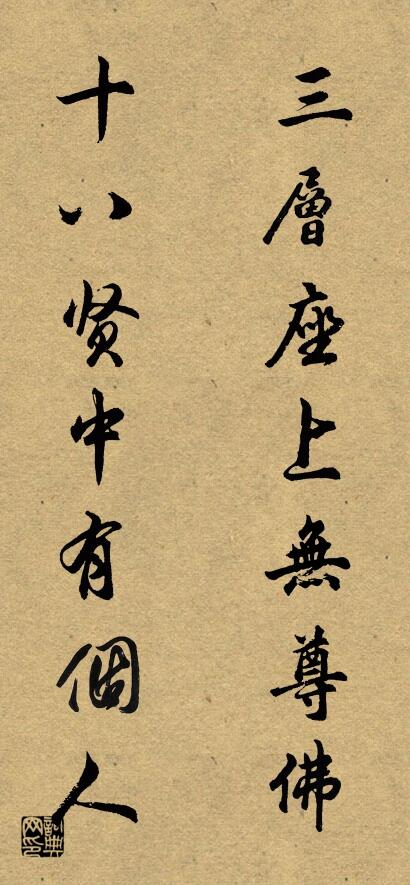 三層座上無尊佛
十八贤中有個人